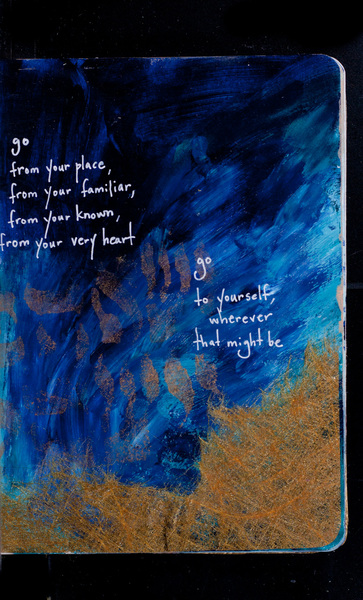 go
from your place,
from your familiar,
from your known,
from your very heart
go
to yourself,
wherever
that might be